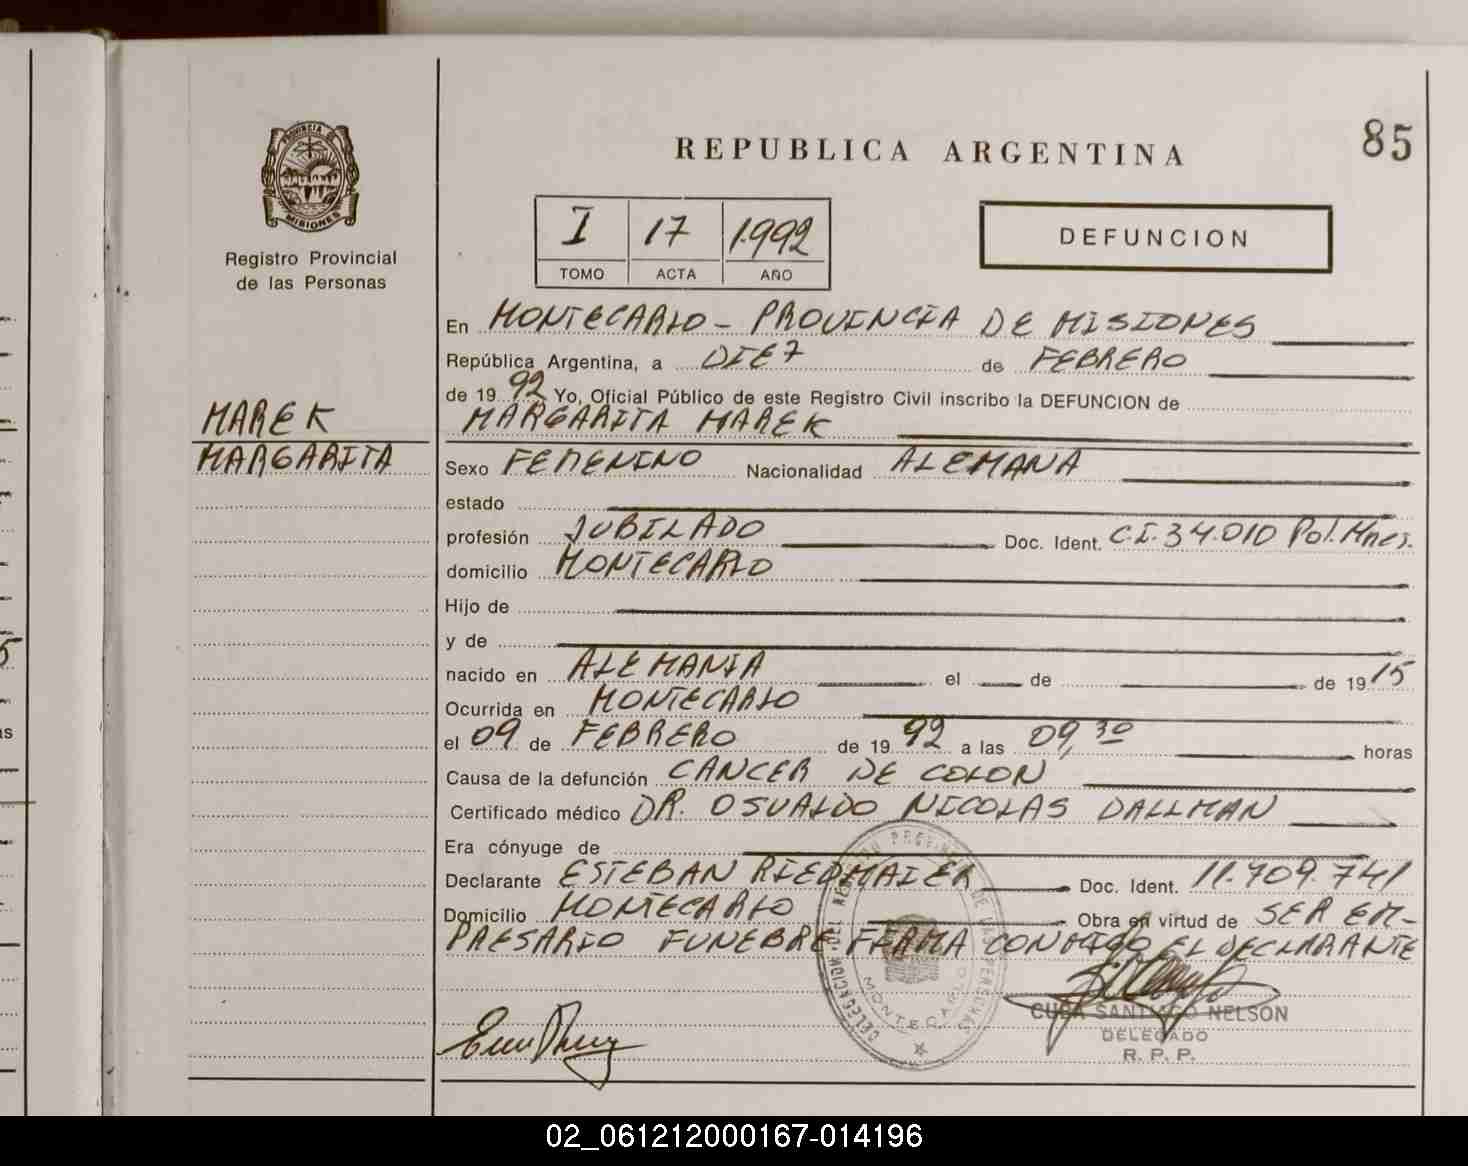 85
REPUBLICA ARGENTINA
PROVINCIA DE
MISIONES
Registro Provincial
de las Personas
I 17 1.992
TOMO ACTA AÑO
DEFUNCION
En MONTECARLO - PROVINCIA DE MISIONES
República Argentina, a DIEZ de FEBRERO
de 19 92 Yo, Oficial Público de este Registro Civil inscribo la DEFUNCION de
MARGARITA MAREK
MAREK
MARGARITA
Sexo FEMENINO Nacionalidad ALEMANA
estado
profesión JUBILADO Doc. Ident. C.I. 34.010 Pol. Mnes.
domicilio MONTECARLO
Hijo de
y de
nacido en ALEMANIA el de de 19 15
Ocurrida en MONTECARLO
el 09 de FEBRERO de 19 92 a las 09,30 horas
Causa de la defunción CANCER DE COLON
Certificado médico DR. OSVALDO NICOLAS DALLMAN
Era cónyuge de
Declarante ESTEBAN RIEDMAIER Doc. Ident. 11.709.741
Domicilio MONTECARLO Obra en virtud de SER EM-
PRESARIO FUNEBRE FIRMA CONMIGO EL DECLARANTE
MONTECARLO
CUBA SANTIAGO NELSON
DELEGADO
R. P. P.
02_061212000167-014196